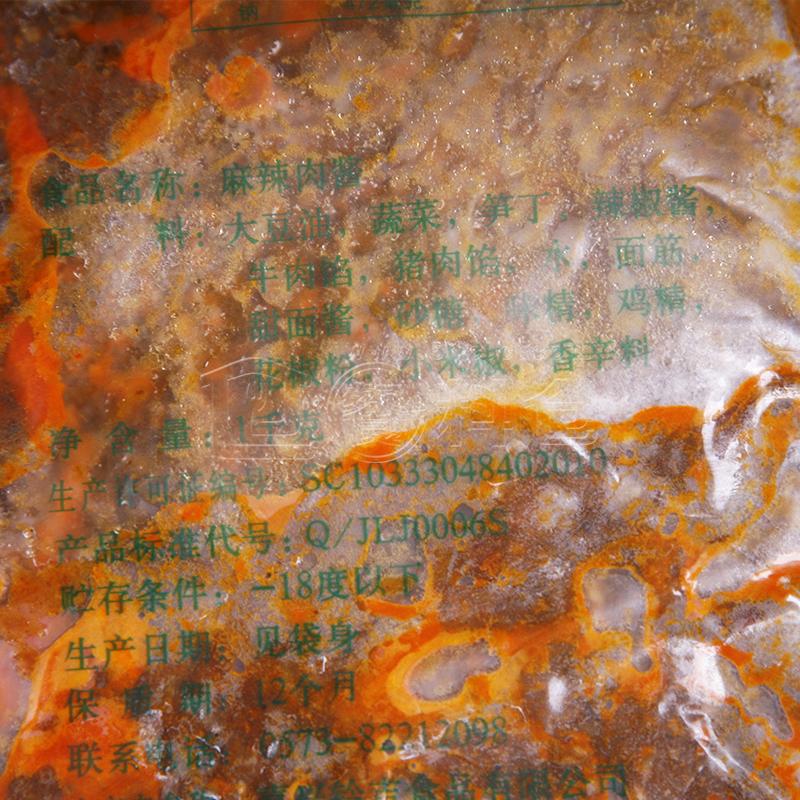 钠
食品名称：麻辣肉酱
配 料：大豆油，蔬菜，笋丁，辣椒酱，
牛肉馅，猪肉馅，水，面筋，
甜面酱，砂糖，味精，鸡精，
花椒粉，小米椒，香辛料
净 含 量：1千克
生产许可证编号：SC10333048402010
产品标准代号：Q/JLJ0006S
贮存条件：-18度以下
生产日期：见袋身
保 质 期：12个月
联系电话：0573-82212098
食品有限公司